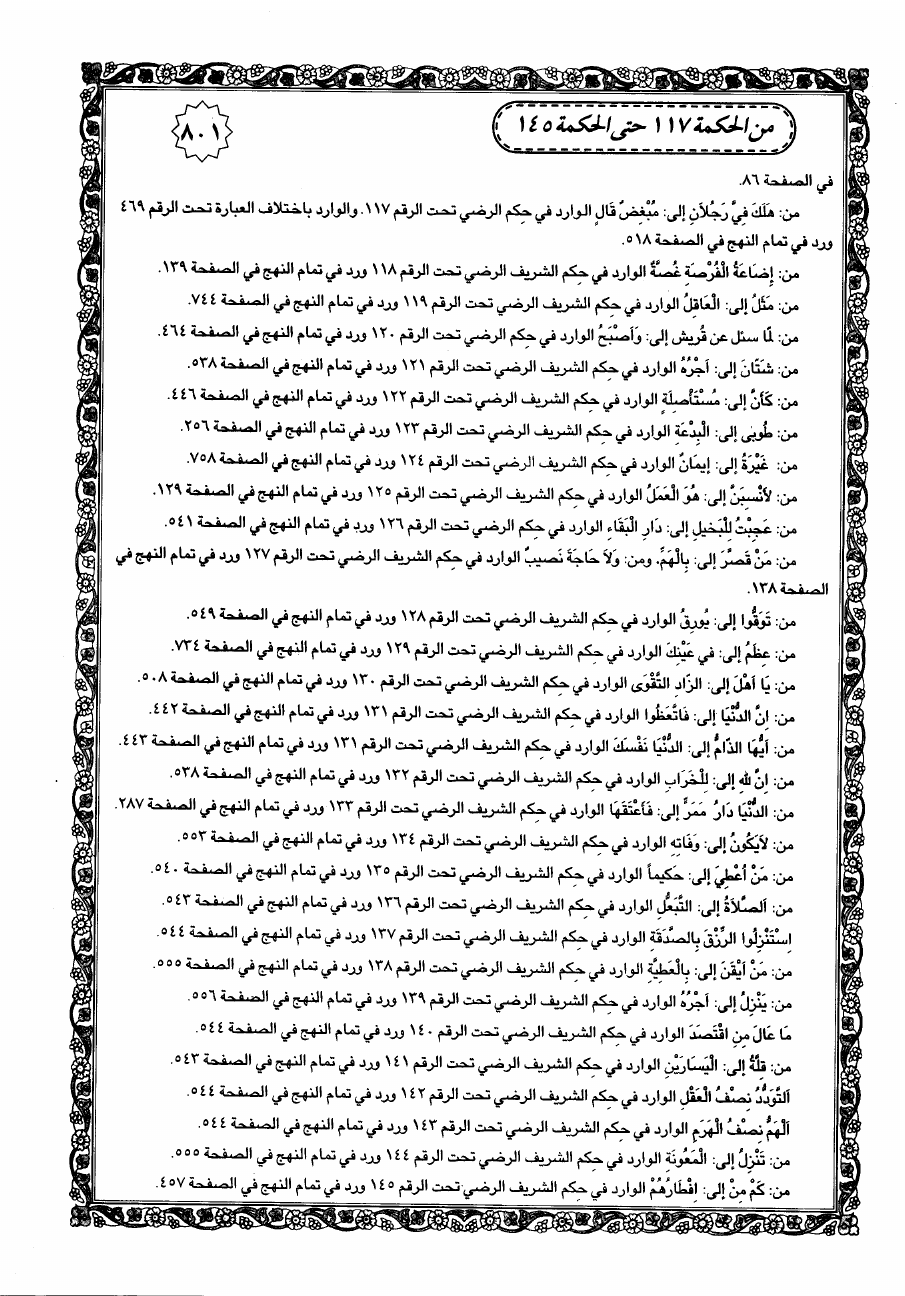 من الحكمة ١١٧ حتى الحكمة ١٤٥
٨٠١
في الصفحة ٨٦.
من: هَلَكَ فِيَّ رَجُلاَنِ إلى: مُبْغِضٌ قَالٍ الوارد في حكم الرضي تحت الرقم ١١٧. والوارد باختلاف العبارة تحت الرقم ٤٦٩
ورد في تمام النهج في الصفحة ٥١٨.
من: إِضَاعَةُ الْفُرْصَةِ غُصَّةٌ الوارد في حكم الشريف الرضي تحت الرقم ١١٨ ورد في تمام النهج في الصفحة ١٣٩.
من: مَثَلُ إلى: الْعَاقِلُ الوارد في حكم الشريف الرضي تحت الرقم ١١٩ ورد في تمام النهج في الصفحة ٧٤٤.
من: لمّا سئل عن قُريش إلى: وَأَصْبَحُ الوارد في حكم الرضي تحت الرقم ١٢٠ ورد في تمام النهج في الصفحة ٤٦٤.
من: شَتَّانَ إلى: أَجْرُهُ الوارد في حكم الشريف الرضي تحت الرقم ١٢١ ورد في تمام النهج في الصفحة ٥٣٨.
من: كَأَنَّ إلى: مُسْتَأْصِلَةٍ الوارد في حِكم الشريف الرضي تحت الرقم ١٢٢ ورد في تمام النهج في الصفحة ٤٤٦.
من: طُوبى إلى: الْبِدْعَةِ الوارد في حِكم الشريف الرضي تحت الرقم ١٢٣ ورد في تمام النهج في الصفحة ٢٥٦.
من: غَيْرَةُ إلى: إِيمَانٌ الوارد في حِكم الشريف الرضي تحت الرقم ١٢٤ ورد في تمام النهج في الصفحة ٧٥٨.
من: لأَنْسِبَنَّ إلى: هُوَ الْعَمَلُ الوارد في حِكم الشريف الرضي تحت الرقم ١٢٥ ورد في تمام النهج في الصفحة ١٢٩.
من: عَجِبْتُ لِلْبَخيلِ إلى: دَارِ الْبَقَاءِ الوارد في حِكم الرضي تحت الرقم ١٢٦ ورد في تمام النهج في الصفحة ٥٤١.
من: مَنْ قَصَّرَ إلى: بِالْهَمِّ، ومن: وَلاَ حَاجَةَ نَصيبٌ الوارد في حِكم الشريف الرضي تحت الرقم ١٢٧ ورد في تمام النهج في
الصفحة ١٣٨.
من: تَوَقُّوا إلى: يُورِقُ الوارد في حِكم الشريف الرضي تحت الرقم ١٢٨ ورد في تمام النهج في الصفحة ٥٤٩.
من: عِظَمُ إلى: في عَيْنِكَ الوارد في حِكم الشريف الرضي تحت الرقم ١٢٩ ورد في تمام النهج في الصفحة ٧٣٤.
من: يَا أَهْلَ إلى: الزَّادِ التَّقْوَى الوارد في حكم الشريف الرضي تحت الرقم ١٣٠ ورد في تمام النهج في الصفحة ٥٠٨.
من: إِنَّ الدُّنْيَا إلى: فَاتَّعَظُوا الوارد في حكم الشريف الرضي تحت الرقم ١٣١ ورد في تمام النهج في الصفحة ٤٤٢.
من: أَيُّهَا الذَّامُّ إلى: الدُّنْيَا نَفْسَكَ الوارد في حكم الشريف الرضي تحت الرقم ١٣١ ورد في تمام النهج في الصفحة ٤٤٣.
من: إِنَّ للهِ إلى: لِلْخَرَابِ الوارد في حكم الشريف الرضي تحت الرقم ١٣٢ ورد في تمام النهج في الصفحة ٥٣٨.
من: الدُّنْيَا دَارُ مَمَرٍّ إلى: فَأَعْتَقَهَا الوارد في حكم الشريف الرضي تحت الرقم ١٣٣ ورد في تمام النهج في الصفحة ٢٨٧.
من: لاَيَكُونُ إلى: وَفَاتِهِ الوارد في حكم الشريف الرضي تحت الرقم ١٣٤ ورد في تمام النهج في الصفحة ٥٥٣.
من: مَنْ أُعْطِيَ إلى: حَكيماً الوارد في حكم الشريف الرضي تحت الرقم ١٣٥ ورد في تمام النهج في الصفحة ٥٤٠.
من: اَلصَّلاَةُ إلى: التَّبَعُّلِ الوارد في حكم الشريف الرضي تحت الرقم ١٣٦ ورد في تمام النهج في الصفحة ٥٤٣.
اِسْتَنْزِلُوا الرِّزْقَ بِالصَّدَقَةِ الوارد في حِكم الشريف الرضي تحت الرقم ١٣٧ ورد في تمام النهج في الصفحة ٥٤٤.
من: مَنْ أَيْقَنَ إلى: بِالْعَطِيَّةِ الوارد في حِكم الشريف الرضي تحت الرقم ١٣٨ ورد في تمام النهج في الصفحة ٥٥٥.
من: يَنْزِلُ إلى: أَجْرُهُ الوارد في حِكم الشريف الرضي تحت الرقم ١٣٩ ورد في تمام النهج في الصفحة ٥٥٦.
مَا عَالَ مَنِ اقْتَصَدَ الوارد في حِكم الشريف الرضي تحت الرقم ١٤٠ ورد في تمام النهج في الصفحة ٥٤٤.
من: قِلَّةُ إلى: الْيَسَارَيْنِ الوارد في حِكم الشريف الرضي تحت الرقم ١٤١ ورد في تمام النهج في الصفحة ٥٤٣.
اَلتَّوَدُّدُ نِصْفُ الْعَقْلِ الوارد في حِكم الشريف الرضي تحت الرقم ١٤٢ ورد في تمام النهج في الصفحة ٥٤٤.
اَلْهَمُّ نِصْفُ الْهَرَمِ الوارد في حِكم الشريف الرضي تحت الرقم ١٤٣ ورد في تمام النهج في الصفحة ٥٤٤.
من: تَنْزِلُ إلى: الْمَعُونَةِ الوارد في حِكم الشريف الرضي تحت الرقم ١٤٤ ورد في تمام النهج في الصفحة ٥٥٥.
من: كَمْ مِنْ إلى: إِفْطَارُهُمْ الوارد في حِكم الشريف الرضي تحت الرقم ١٤٥ ورد في تمام النهج في الصفحة ٤٥٧.